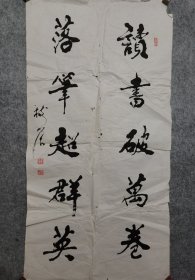 讀書破萬卷
落筆超群英